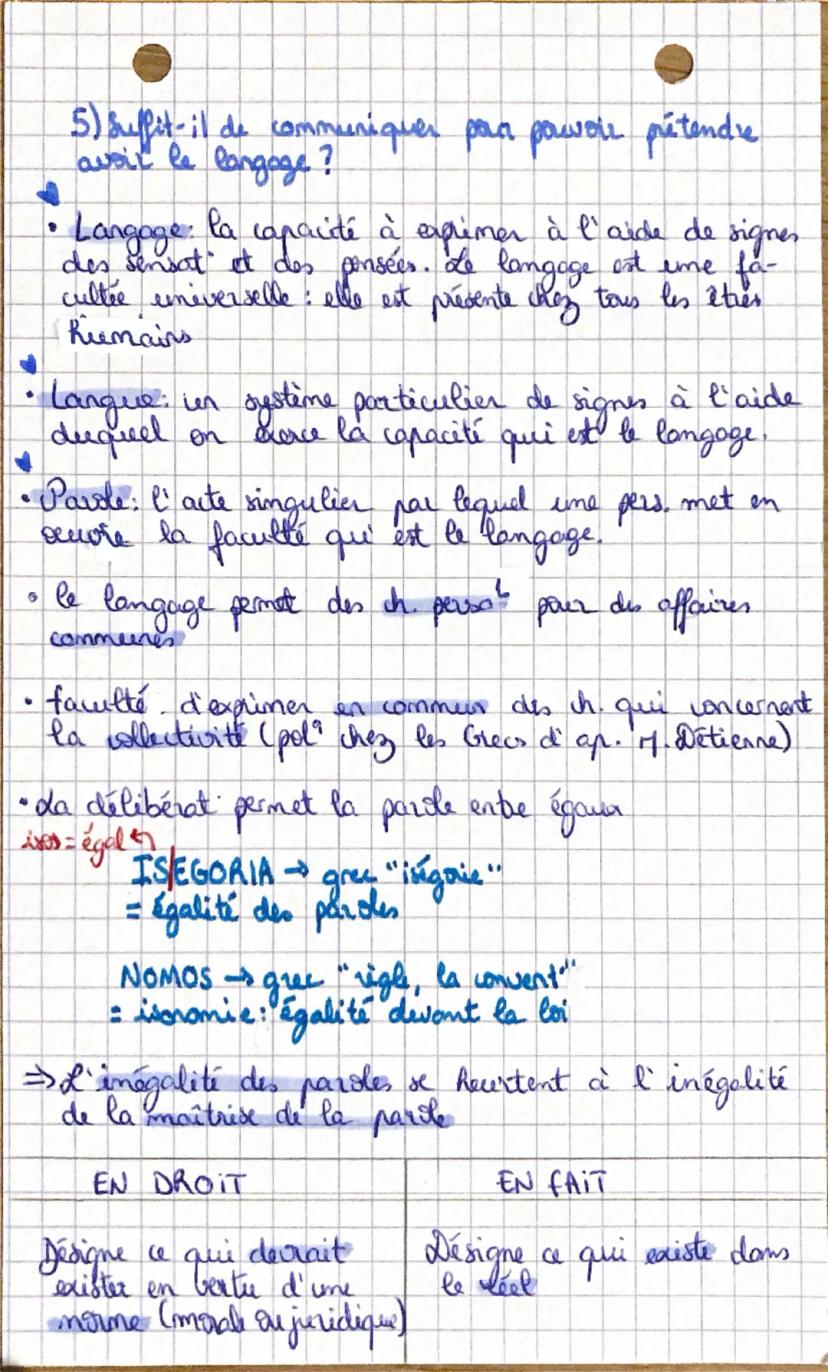 5) Suffit-il de communiquer pour pouvoir prétendre
avoir le langage ?
• Langage : la capacité à exprimer à l'aide de signes
des sensat° et des pensées. Le langage est une fa-
cultée universelle : elle est présente chez tous les êtres
humains
• Langue : un système particulier de signes à l'aide
duquel on exerce la capacité qui est le langage.
• Parole : l'acte singulier par lequel une pers. met en
oeuvre la faculté qui est le langage.
• le langage permet des ch. perso^L pour des affaires
communes
• faculté d'exprimer en commun des ch. qui concernent
la collectivité (pol^q chez les Grecs d'ap. M. Détienne)
• La délibérat° permet la parole entre égaux
isos = égal ↰
IS/EGORIA → grec "iségorie"
= égalité des paroles
NOMOS → grec "règle, la convent°"
= isonomie : égalité devant la loi
⇒ L'inégalité des paroles se heurtent à l'inégalité
de la maîtrise de la parole
EN DROIT
EN FAIT
Désigne ce qui devrait
exister en vertu d'une
norme (morale ou juridique)
Désigne ce qui existe dans
le réel